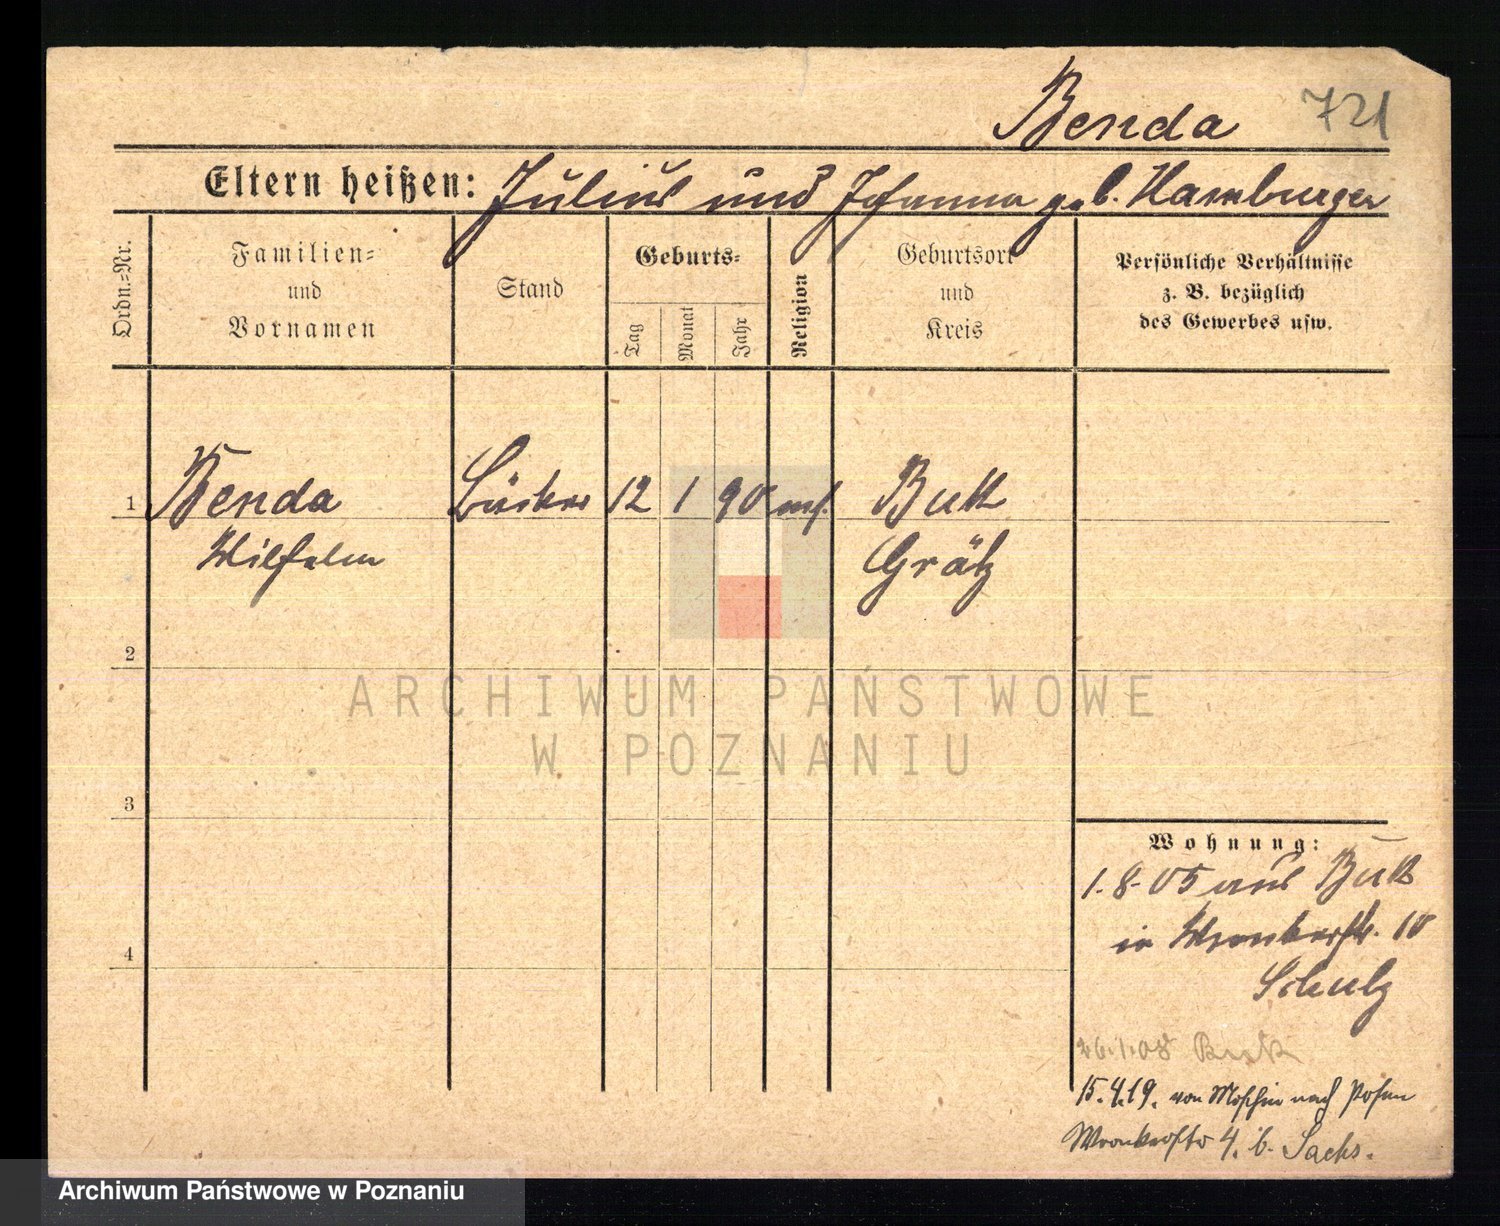 Benda 721
Eltern heißen: Julius und Johanna geb. Hamburger
Ordn.-Nr.
Familien-
und
Vornamen
Stand
Geburts-
Tag
Monat
Jahr
Religion
Geburtsort
und
Kreis
Persönliche Verhältnisse
z. B. bezüglich
des Gewerbes usw.
1 Benda Bäcker 12 1 90 mos. Buk
Wilhelm Grätz
2
ARCHIWUM PAŃSTWOWE
W POZNANIU
3
Wohnung:
1.8.05 aus Buk
in Wronkerstr. 10
Schulz
4
26.1.08 Buk
15.4.19. von Moschin nach Posen
Wronkerstr 4. b. Sachs.
Archiwum Państwowe w Poznaniu